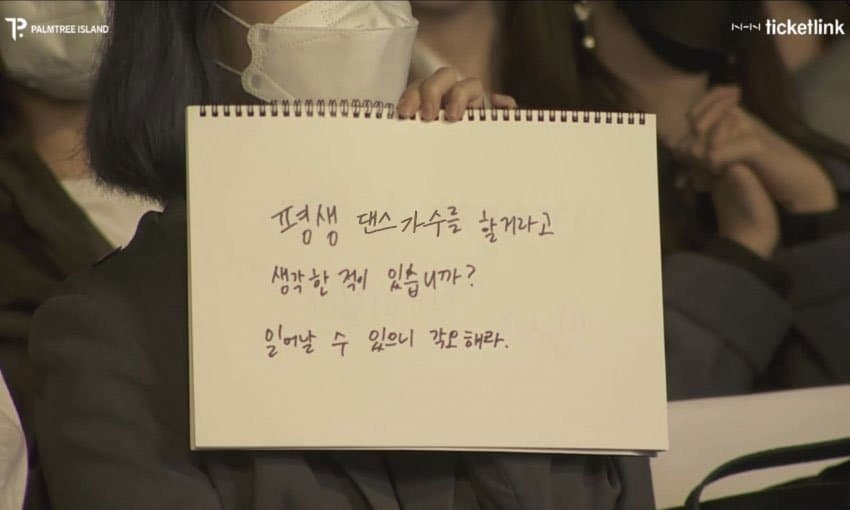 PALMTREE ISLAND
NHN ticketlink
평생 댄스 가수를 할거라고
생각한 적이 있습니까?
일어날 수 있으니 각오해라.